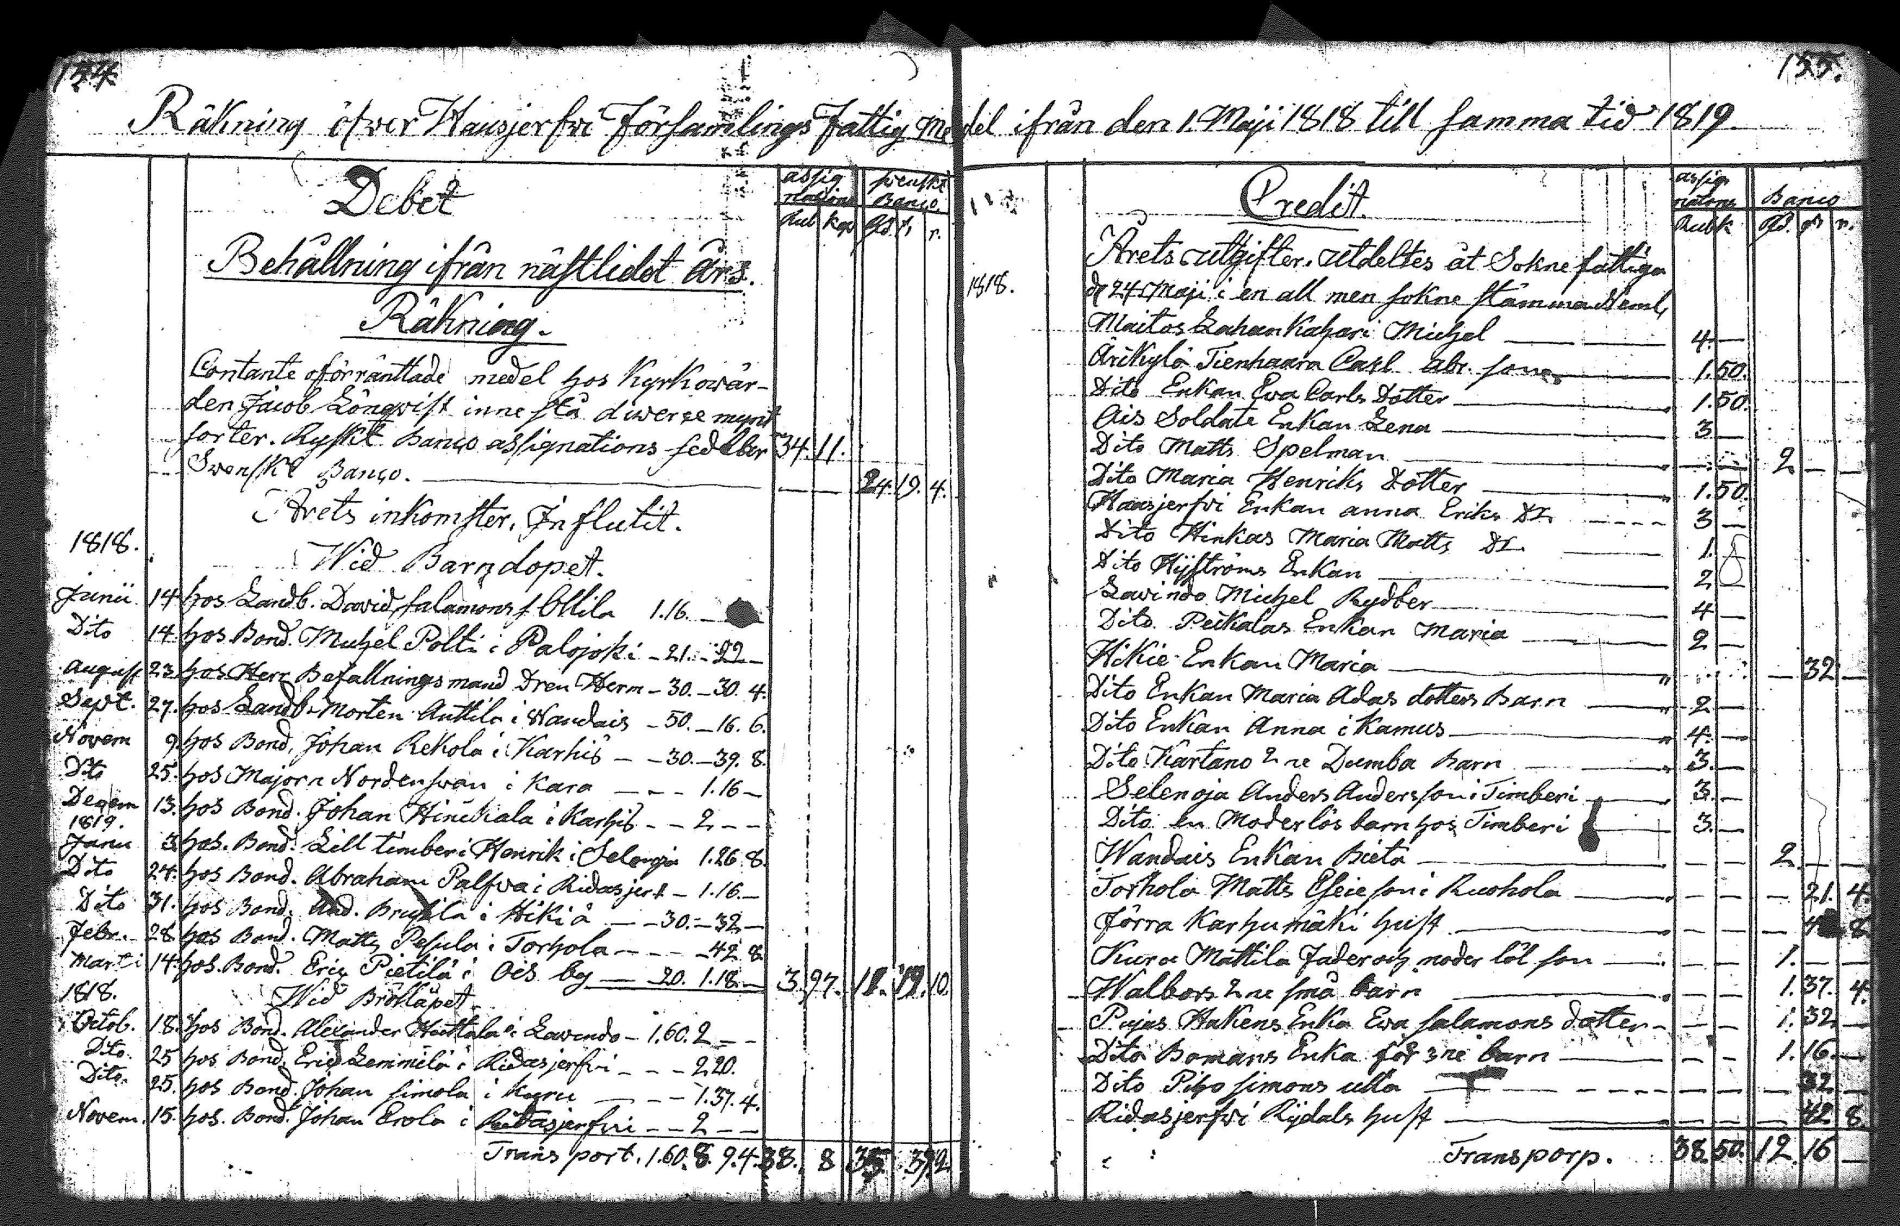 154.
155.
Räkning öfver Hausjerfvi Församlings Fattig Medel ifrån den 1. Maji 1818 till samma tid 1819.
Debet
assig nations
Svenskt Banco
Rub Kop
Rd. s. r.
Behållning ifrån nästlidet års
Räkning.
Contante oförränttade medel hos Kyrkowär-
den Jacob Lönqvist inne stå diverse mynt
sorter. Ryskt Banco assignations sedelber 34. 11.
Svenskt Banco. 24. 19. 4.
Årets inkomster. Influtit.
1818.
Wid Barndopet.
Junii 14 hos Landb. David Salamons s. Ollila 1.16.
Dito 14. hos Bond. Michel Polti i Palojoki - 21. - 22 -
August 23. hos Herr Befallningsmand Dreu Herm - 30. - 30. 4.
Sept. 27. hos Landb. Morten Anttila i Wandais - 50. - 16. 6.
Novem 9. hos Bond. Johan Rekola i Karhis - - 30. - 39. 8.
Dito 25. hos Majorn Nordenswan i Kara - - - 1.16 -
Decem 13. hos Bond. Johan Hinckala i Karhis - - 2 - -
1819.
Janu 3. hos. Bond. Lill timberi Henrik i Selenoja 1.26. 8.
Dito 24. hos Bond. Abraham Palfva i Ridasjerf - 1.16. -
Dito 31. hos Bond. And. Brusila i Hikiä - - 30. - 32 -
Febr. 28 hos Bond. Matts Pesula i Torhola - - - - 42. 8.
Marti 14 hos. Bond. Eric Pietilä i Ois by - 20. 1.18. - 3. 97. 11. 19. 10.
1818.
Wid Bröllopet
Octob. 18. hos Bond. Alexander Hiettala i Lavindo - 1.60. 2 - -
Dito. 25 hos Bond. Eric Lemmilä i Ridasjerfvi - - - 2 20.
Dito. 25. hos Bond. Johan Simola i Kuru - - - 1.37. 4.
Novem. 15. hos. Bond. Johan Erola i Ridasjerfvi - - 2 - -
Transport. 1.60. 8. 9. 4. 38. 8 35. 39. 2.
Credit.
assig nations
Banco
Rub K
Rd. s. r.
Årets utgifter. utdeltes åt Sokne fattiga
1818. d. 24 Maji i en all men sokne stämma Neml.
Maitos Lahan Kasari Michel 4. -
Ärikylä Tienhaara Carl Abr. sones 1.50.
Dito Enkan Eva Carls Dotter 1.50.
Ois Soldate Enkan Lena 3 -
Dito Matts Spelman 2 - -
Dito Maria Henriks Dotter 1.50.
Hausjerfvi Enkan Anna Eriks Dt. 3 -
Dito Hinkas Maria Matts Dt. 1.
Dito Hyströms Enkan 2 -
Lavindo Michel Rydber 4 -
Dito Peikalas Enkan Maria 2 -
Hikie Enkan Maria - 32. -
Dito Enkan Maria Adas dotters Barn 2 -
Dito Enkan Anna i Kamus 4. -
Dito Kartano 2 ne Dumba Barn 3. -
Selenoja Anders Andersson i Timberi 3. -
Dito en Moderlös barn hos Timberi 3. -
Wandais Enkan Bieta 2 - -
Torhola Matts Eseie son i Ruohola - 21. 4.
Förra Karhumäki hust 8
Kuru Mattila Fader och moder lös son 1. - -
Walbors 2 ne små barn 1. 37. 4.
Pujas Hakens Enka Eva Salamons dotter 1. 32 -
Dito Bomans Enka för 3 ne barn 1. 16. -
Dito Piho Simons ulla - 32 -
Ridasjerfvi Rydals hust - 42 8.
Transporp. 38. 50. 12. 16 -